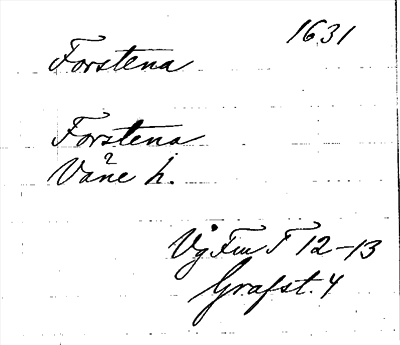 1631
Forstena
Forstena
Väne h.
Vg Fm T 12-13
Grafst. 4